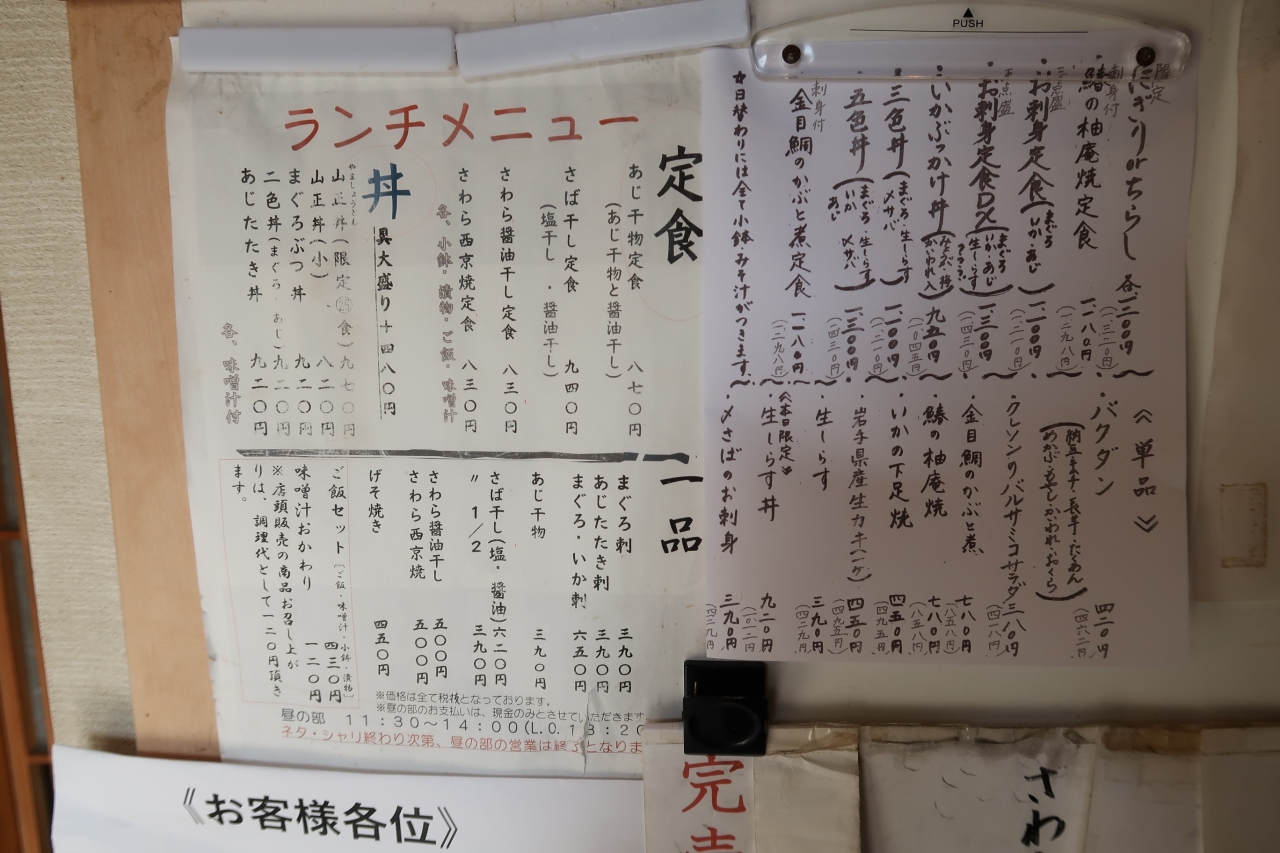 PUSH
限定
にぎりorちらし 各一二〇〇円
(一三二〇円)
刺身付
・鰆の柚庵焼定食 一、一八〇円
(一二九八円)
三点盛
・お刺身定食(まぐろ・いか・あじ) 一、一〇〇円
(一二一〇円)
五点盛
・お刺身定食DX 一、三〇〇円
(一四三〇円)
・いかぶっかけ丼 九五〇円
(一〇四五円)
・三色丼(まぐろ・生しらす・〆サバ) 一、一〇〇円
(一二一〇円)
・五色丼(まぐろ・生しらす・いか・〆サバ・あじ) 一、三〇〇円
(一四三〇円)
刺身付
・金目鯛のかぶと煮定食 一、一八〇円
(一二九八円)
☆日替わりには全て小鉢・みそ汁がつきます。
《単品》
・バクダン 四二〇円
(四六二円)
(納豆・玉子・長芋・たくあん
めかじ・もずく・かいわれ・おくら)
・クレソンのバルサミコサラダ 三八〇円
(四一八円)
・金目鯛のかぶと煮 七八〇円
(八五八円)
・鰆の柚庵焼 七八〇円
(八五八円)
・いかの下足焼 四五〇円
(四九五円)
・岩手県産生カキ(一ケ) 四五〇円
(四九五円)
・生しらす 三九〇円
(四二九円)
《本日限定》
・生しらす丼 九二〇円
(一〇一二円)
・〆さばのお刺身 三九〇円
(四二九円)
ランチメニュー
定食
あじ干物定食 八七〇円
(あじ干物と醤油干し)
さば干し定食 九四〇円
(塩干し・醤油干し)
さわら醤油干し定食 八三〇円
さわら西京焼定食 八三〇円
各、小鉢・漬物・ご飯・味噌汁
丼
具大盛り+四八〇円
やましょうどん
山正丼(限定15食) 九七〇円
山正丼(小) 八二〇円
まぐろぶつ丼 九二〇円
二色丼(まぐろ・あじ) 九二〇円
あじたたき丼 九二〇円
各、味噌汁付
一品
まぐろ刺 三九〇円
あじたたき刺 三九〇円
まぐろ・いか刺 六五〇円
あじ干物 三九〇円
さば干し(塩・醤油) 六二〇円
〃 1/2 三九〇円
さわら醤油干し 五〇〇円
さわら西京焼 五〇〇円
げそ焼き 四五〇円
ご飯セット[ご飯・味噌汁・小鉢・漬物] 四三〇円
味噌汁おかわり 一二〇円
※店頭販売の商品お召し上が
りは、調理代として一二〇円頂き
ます。
※価格は全て税抜となっております。
※昼の部のお支払いは、現金のみとさせていただきます
昼の部 11:30～14:00(L.O.13:20
ネタ・シャリ終わり次第、昼の部の営業は終了となりま
《お客様各位》
完売
さわ